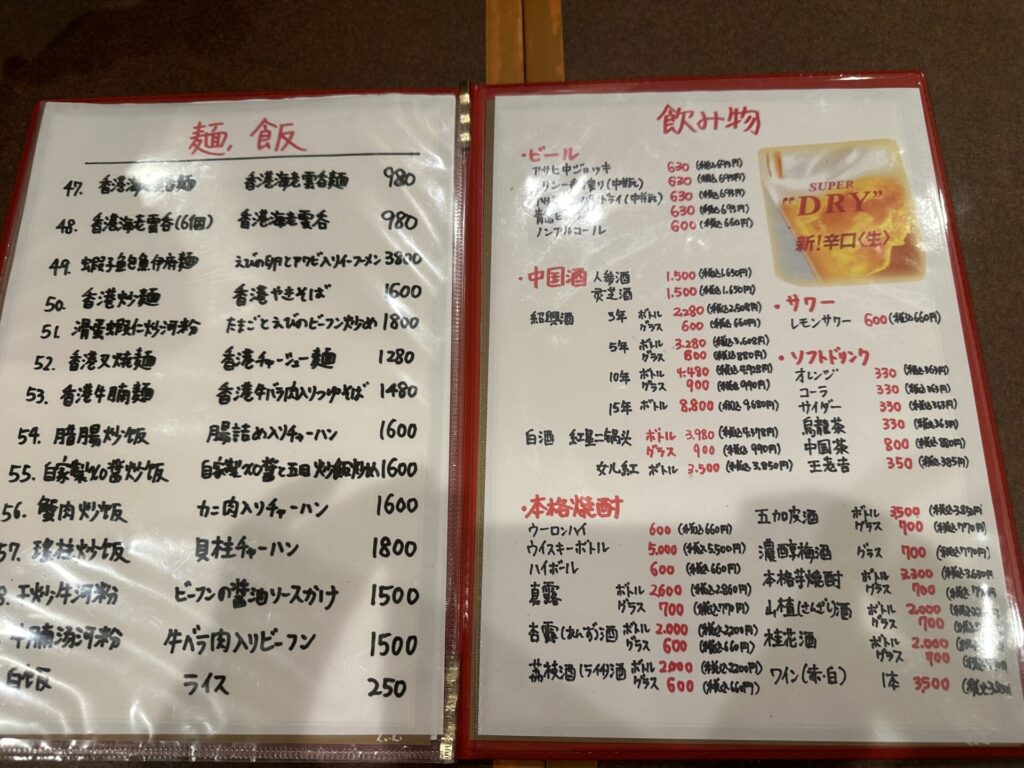 麺,飯
47. 香港海老雲呑麺 香港海老雲呑麺 980
48. 香港海老雲呑(6個) 香港海老雲呑 980
49. 蝦子鮑魚伊府麺 えびの卵とアワビ入りイーフーメン 3800
50. 香港炒麺 香港やきそば 1600
51. 滑蛋蝦仁炒河粉 たまごとえびのビーフン炒め 1800
52. 香港叉焼麺 香港チャーシュー麺 1280
53. 香港牛腩麺 香港牛バラ肉入りつゆそば 1480
54. 腊腸炒飯 腸詰め入りチャーハン 1600
55. 自家製XO醤炒飯 自家製XO醤と五目炒飯炒め 1600
56. 蟹肉炒飯 カニ肉入りチャーハン 1600
57. 瑤柱炒飯 貝柱チャーハン 1800
8. 干炒牛河粉 ビーフンの醤油ソースかけ 1500
牛腩湯河粉 牛バラ肉入りビーフン 1500
白飯 ライス 250
飲み物
・ビール
アサヒ中ジョッキ 630 (税込693円)
630 (税込693円)
ドライ(中瓶) 630 (税込693円)
630 (税込693円)
ノンアルコール 600 (税込660円)
SUPER
"DRY"
新!辛口〈生〉
・中国酒 人参酒 1.500 (税込1.650円)
霊芝酒 1.500 (税込1.650円)
紹興酒 3年 ボトル 2.280 (税込2.508円)
グラス 600 (税込660円)
5年 ボトル 3.280 (税込3.608円)
グラス 800 (税込880円)
10年 ボトル 4.480 (税込4.928円)
グラス 900 (税込990円)
15年 ボトル 8.800 (税込9.680円)
白酒 紅星二鍋头 ボトル 3.980 (税込4.378円)
グラス 900 (税込990円)
女儿紅 ボトル 3.500 (税込3.850円)
・サワー
レモンサワー 600 (税込660円)
・ソフトドリンク
オレンジ 330 (税込363円)
コーラ 330 (税込363円)
サイダー 330 (税込363円)
烏龍茶 330 (税込363円)
中国茶 800 (税込880円)
王老吉 350 (税込385円)
・本格焼酎
ウーロンハイ 600 (税込660円)
ウイスキーボトル 5,000 (税込5,500円)
ハイボール 600 (税込660円)
真露 ボトル 2600 (税込2860円)
グラス 700 (税込770円)
杏露(あんず)酒 ボトル 2.000 (税込2200円)
グラス 600 (税込660円)
茘枝酒(ライチ)酒 ボトル 2.000 (税込2200円)
グラス 600 (税込660円)
五加皮酒 ボトル 3500 (税込3.850円)
グラス 700 (税込770円)
濃醇梅酒 グラス 700 (税込770円)
本格芋焼酎 ボトル 3300 (税込3.630円
グラス 700
山楂(さんざし)酒 ボトル 2.000
グラス 700
桂花酒 ボトル 2.000
グラス 900
ワイン(赤·白) 1本 3,500